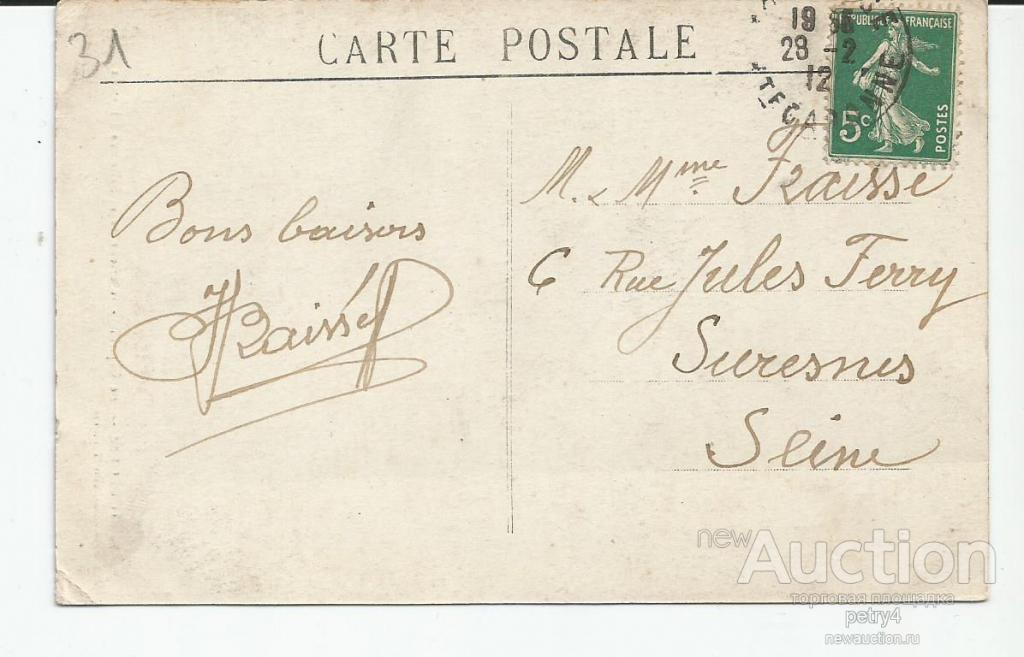 31
CARTE POSTALE
19 30
28-2
12
TE GARONNE
RÉPUBLIQUE FRANÇAISE
5c
POSTES
Bons baisers
Fraisse
M. & Mme Fraisse
6 Rue Jules Ferry
Suresnes
Seine
newAuction
торговая площадка
petry4
newauction.ru